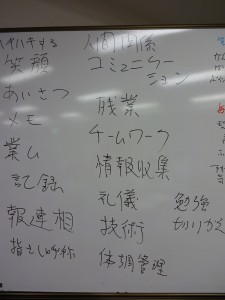 ハキハキする
笑顔
あいさつ
メモ
業ム
記録
報連相
指さし呼称
人間関係
コミュニケー
ション
残業
チームワーク
情報収集
礼儀
技術
体調管理
勉強
切りかえ